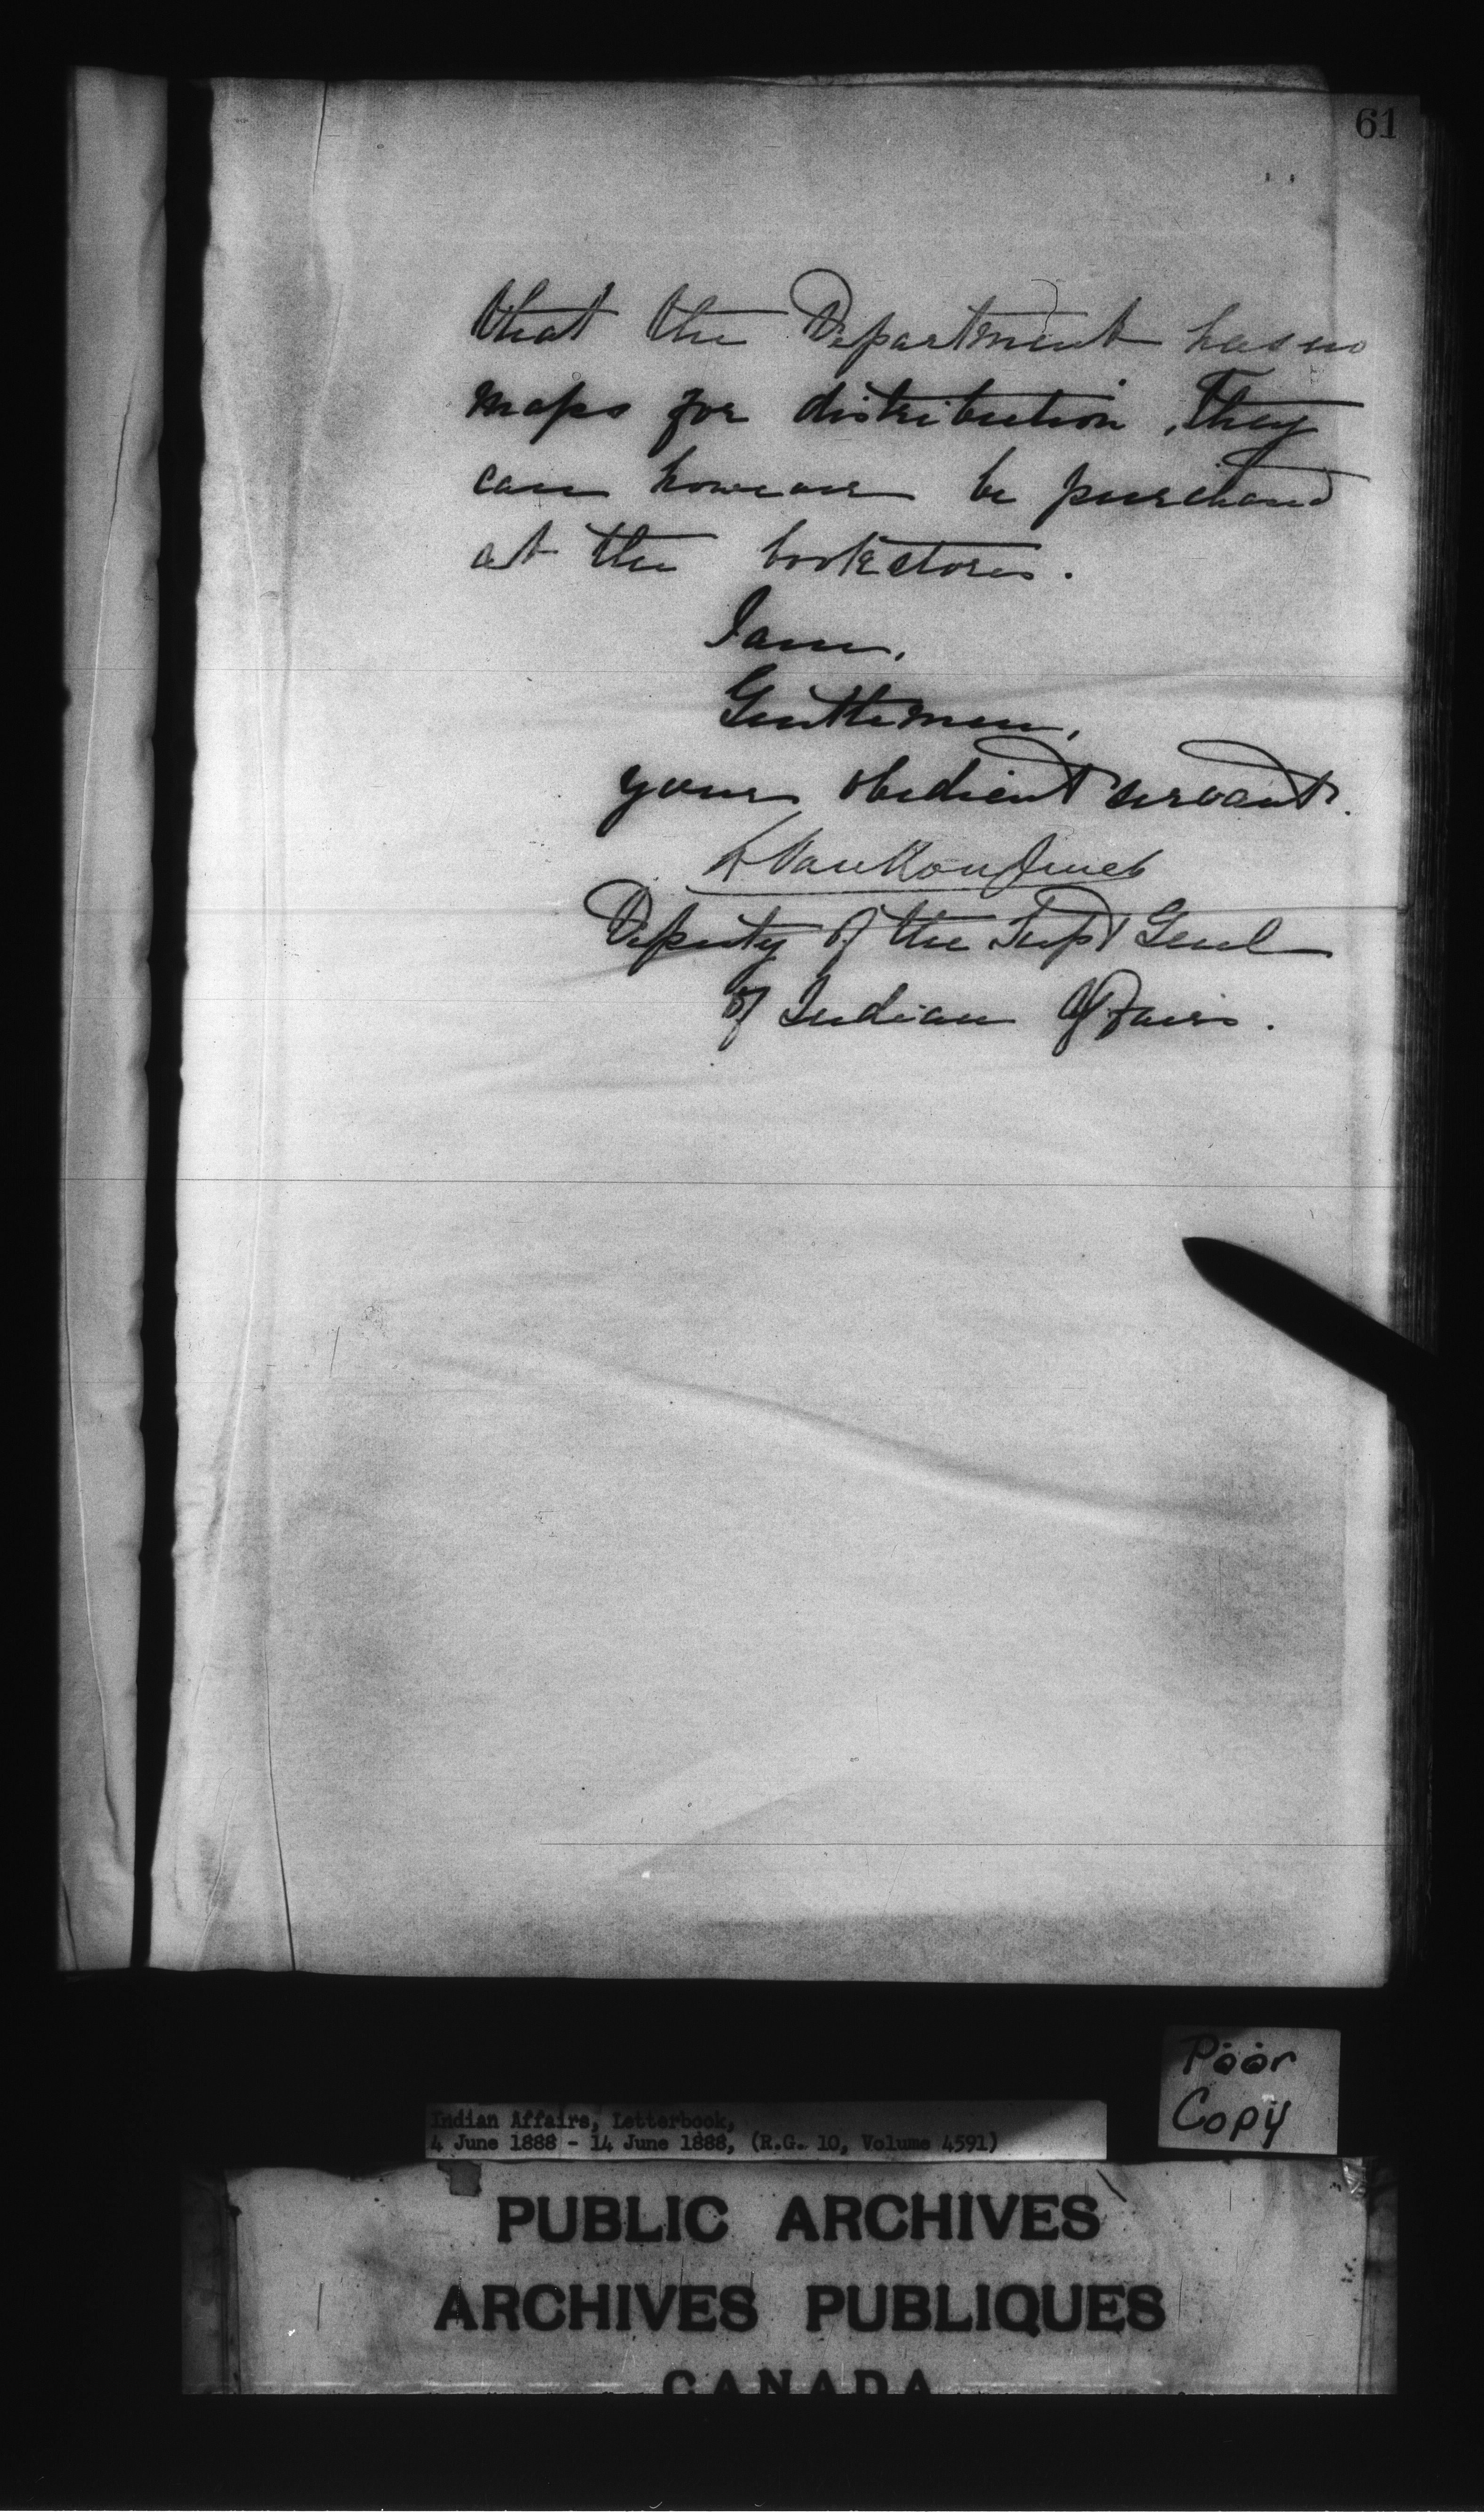 61
that the Department has no
maps for distribution. They
can however be purchased
at the bookstores.
I am,
Gentlemen,
your obedient servant.
L VanKoughnet
Deputy of the Supt Genl
of Indian Affairs.
Poor
Copy
Indian Affairs, Letterbook,
4 June 1888 - 14 June 1888, (R.G. 10, Volume 4591)
PUBLIC ARCHIVES
ARCHIVES PUBLIQUES
CANADA